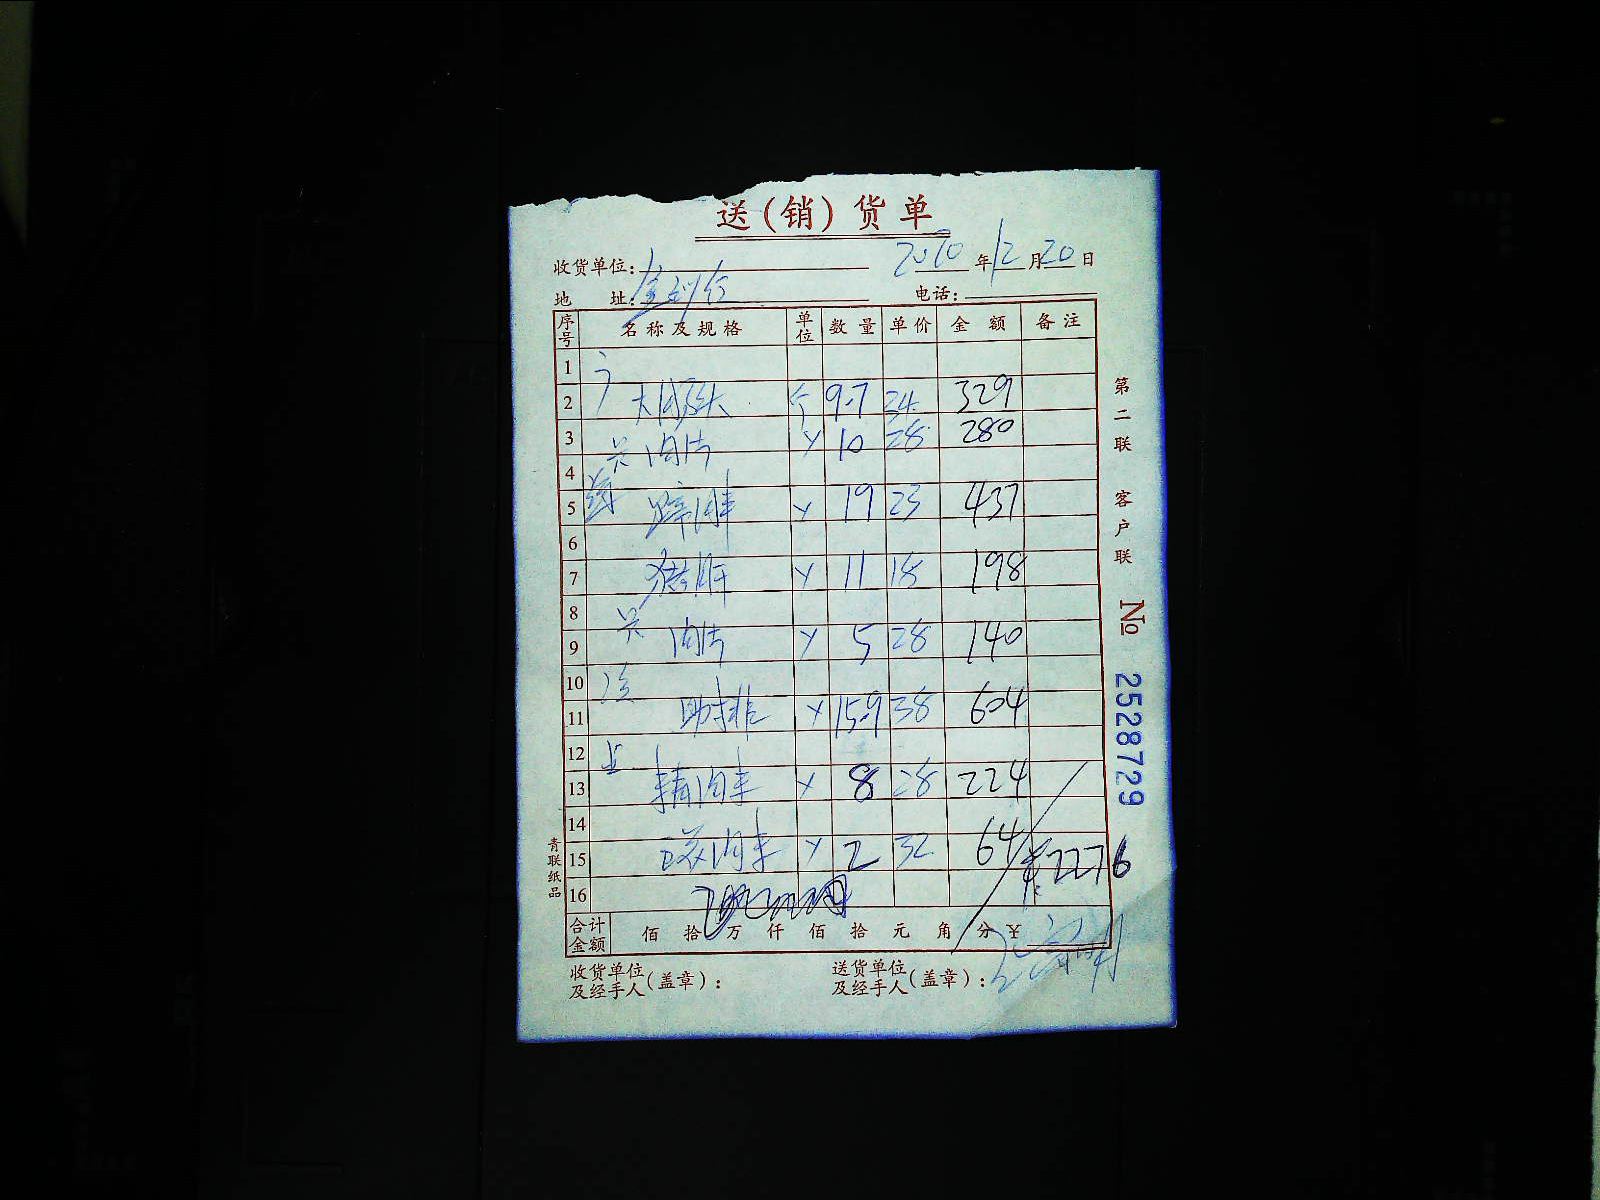 送(销)货单
收货单位: 2010年12月20日
地 址: 电话:
序号 名称及规格 单位 数量 单价 金额 备注
1
2 9.7 34 329
3 肉片 10 28 280
4
5 19 23 437
6
7 11 18 198
8
9 肉片 5 28 140
10
11 助排 15.9 38 604
12
13 精肉 8 28 224
14
15 2 32 64 ¥2276
16
合计金额 佰拾万仟佰拾元角分¥
收货单位及经手人(盖章): 送货单位及经手人(盖章):
第二联 客户联
№ 2528729
青联纸品